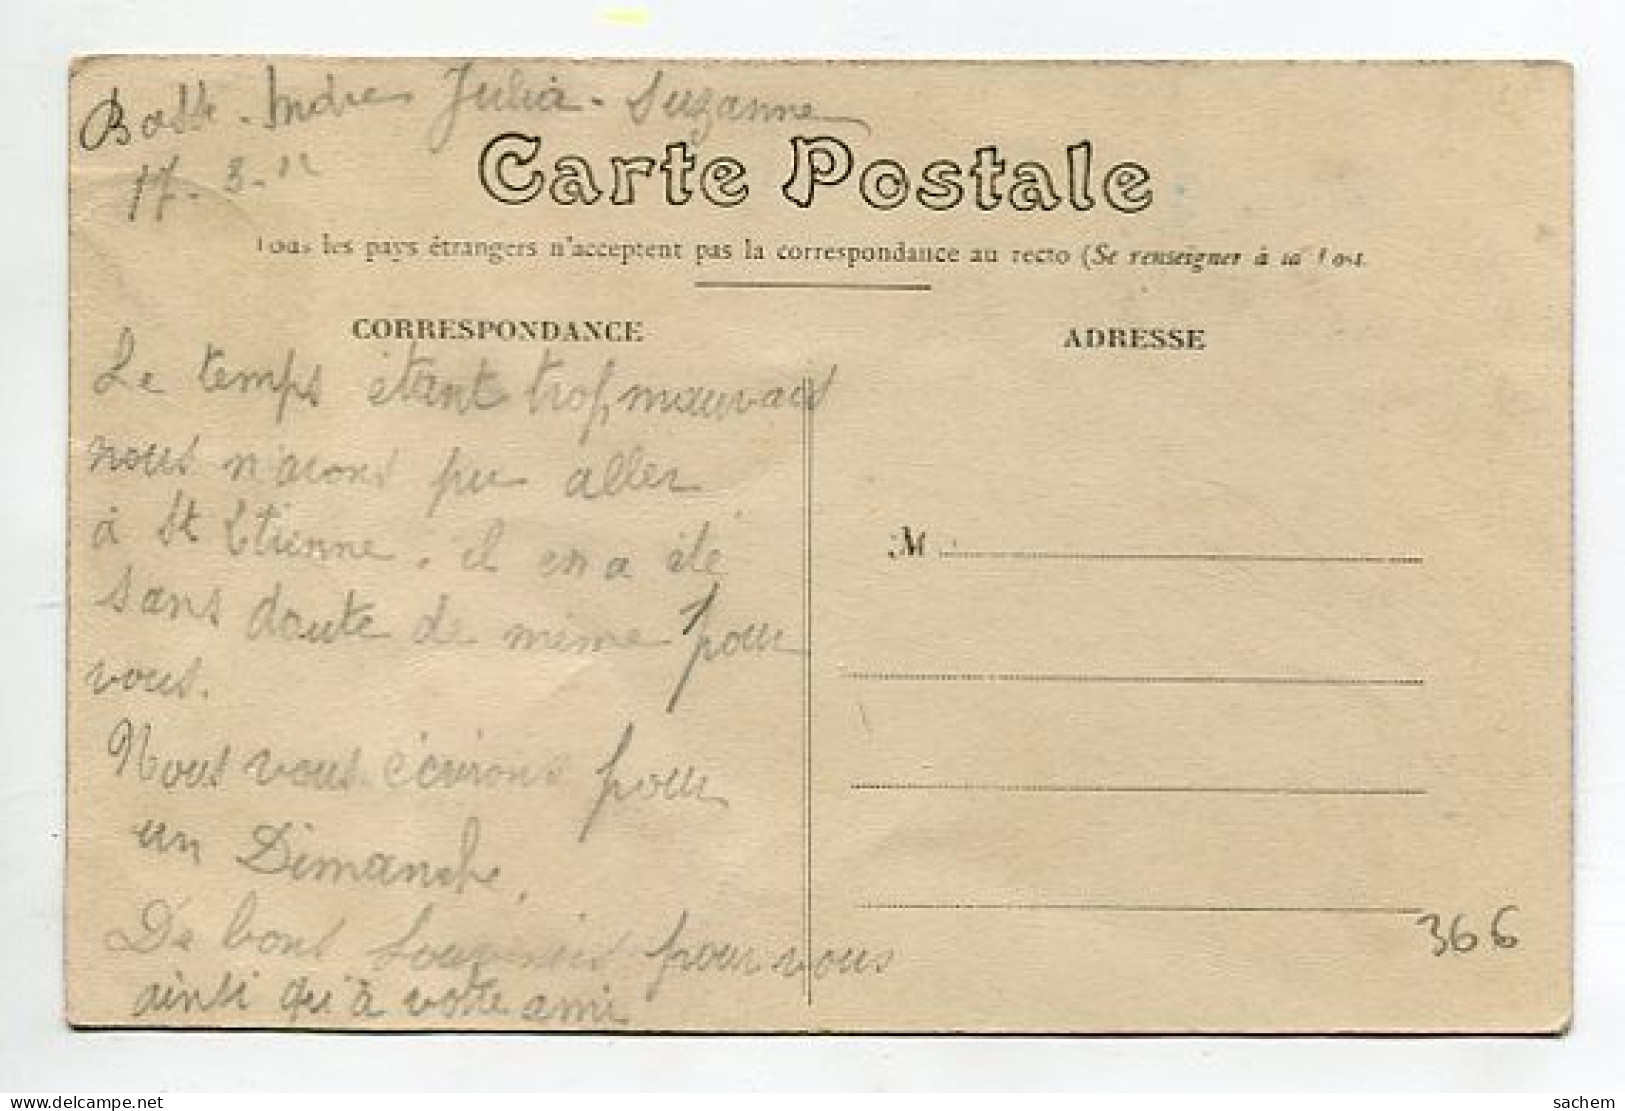 Basse-Indre Julia - Suzanne
17-3-12
Carte Postale
Tous les pays étrangers n'acceptent pas la correspondance au recto (Se renseigner à la Post.
CORRESPONDANCE
ADRESSE
Le temps étant trop mauvais
nous n'avons pu aller
à St Etienne. il en a été
sans doute de même pour
vous.
Nous vous écrirons pour
un Dimanche.
De bons souvenirs pour vous
ainsi qu'à votre amie
M
366
delcampe.net
sachem